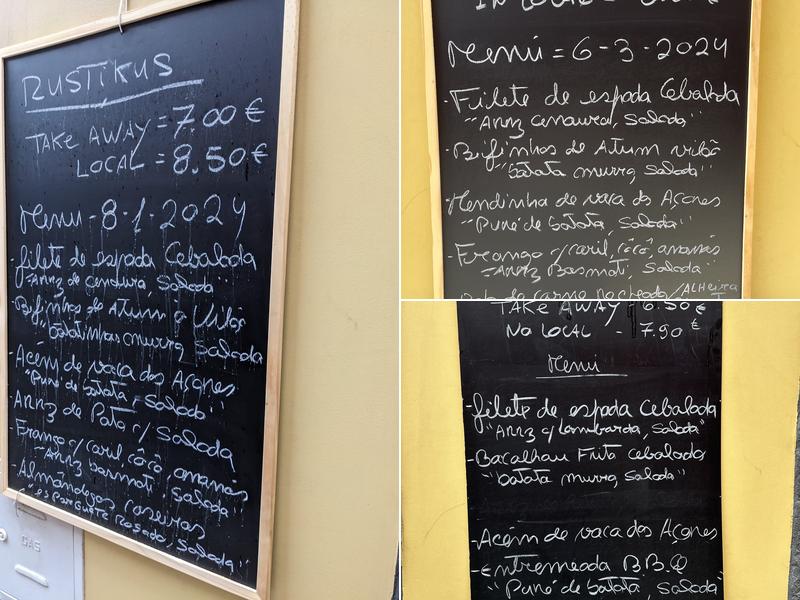 RUSTIKUS
TAKE AWAY = 7.00 €
LOCAL = 8.50 €
Menu - 8-1-2024
- filete de espada Cebolada
"Arroz de cenoura, Salada"
- Bifinhos de Atum à Vilão
"batatinhas murro, Salada
- Acém de vaca dos Açores
"Puré de batata, Salada"
- Arroz de Pato c/ Salada
- Frango c/ caril, côco, ananás
"Arroz basmati, Salada"
- Almôndegas caseiras
"esparguete Rosado, Salada"
GAS
Menú = 6-3-2024
- Filete de espada Cebolada
"Arroz cenoura, Salada"
- Bifinhos de Atum vilão
"batata murro, Salada"
- Mendinha de vaca dos Açores
"Puré de batata, Salada"
- Frango c/ caril, côco, ananás
"Arroz Basmati, Salada"
de carne recheado /ALHeira
TAKE AWAY - 6.50 €
NO LOCAL - 7.90 €
Menu
- filete de espada Cebolada
"Arroz c/ lombarda, Salada"
- Bacalhau Frito cebolada
"batata murro, Salada"
- Acém de vaca dos Açores
- Entremeada B.B.Q
"Puré de batata, Salada"